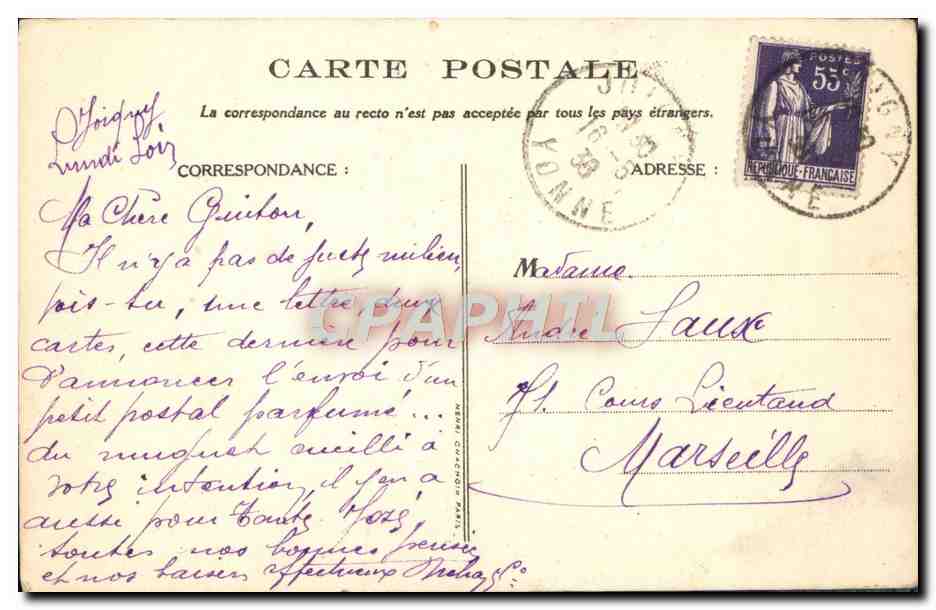 CARTE POSTALE
La correspondance au recto n'est pas acceptée par tous les pays étrangers.
Joigny
Lundi Soir
CORRESPONDANCE :
Ma Chère
Il n'y a pas de juste milieu,
vois-tu, une lettre, deux
cartes, cette dernière pour
t'annoncer l'envoi d'un
petit postal parfumé...
du muguet cueilli à
votre intention, il y en a
aussi pour Tante
toutes nos bonnes pensées
et nos baisers affectueux
HENRI CHACHOIN PARIS
ADRESSE :
Madame
André Saux
71. Cours Lieutaud
Marseille
POSTES
55c
REPUBLIQUE-FRANÇAISE
YONNE
CPAPHIL